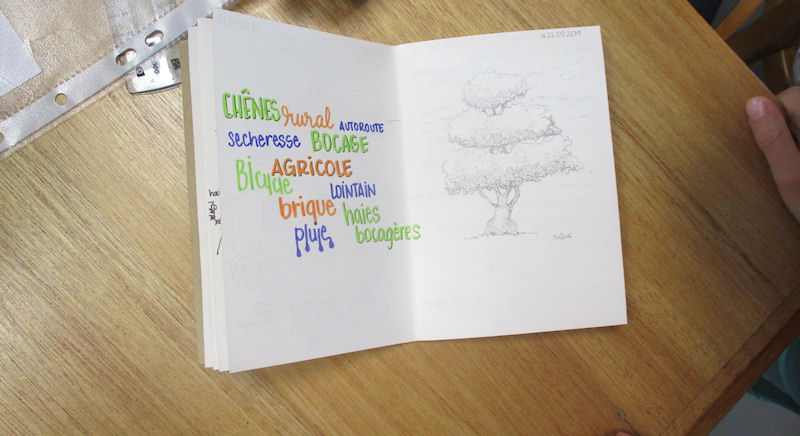 CHÊNES rural AUTOROUTE
secheresse BOCAGE
AGRICOLE
Bicycle LOINTAIN
brique haies
pluie bocagères